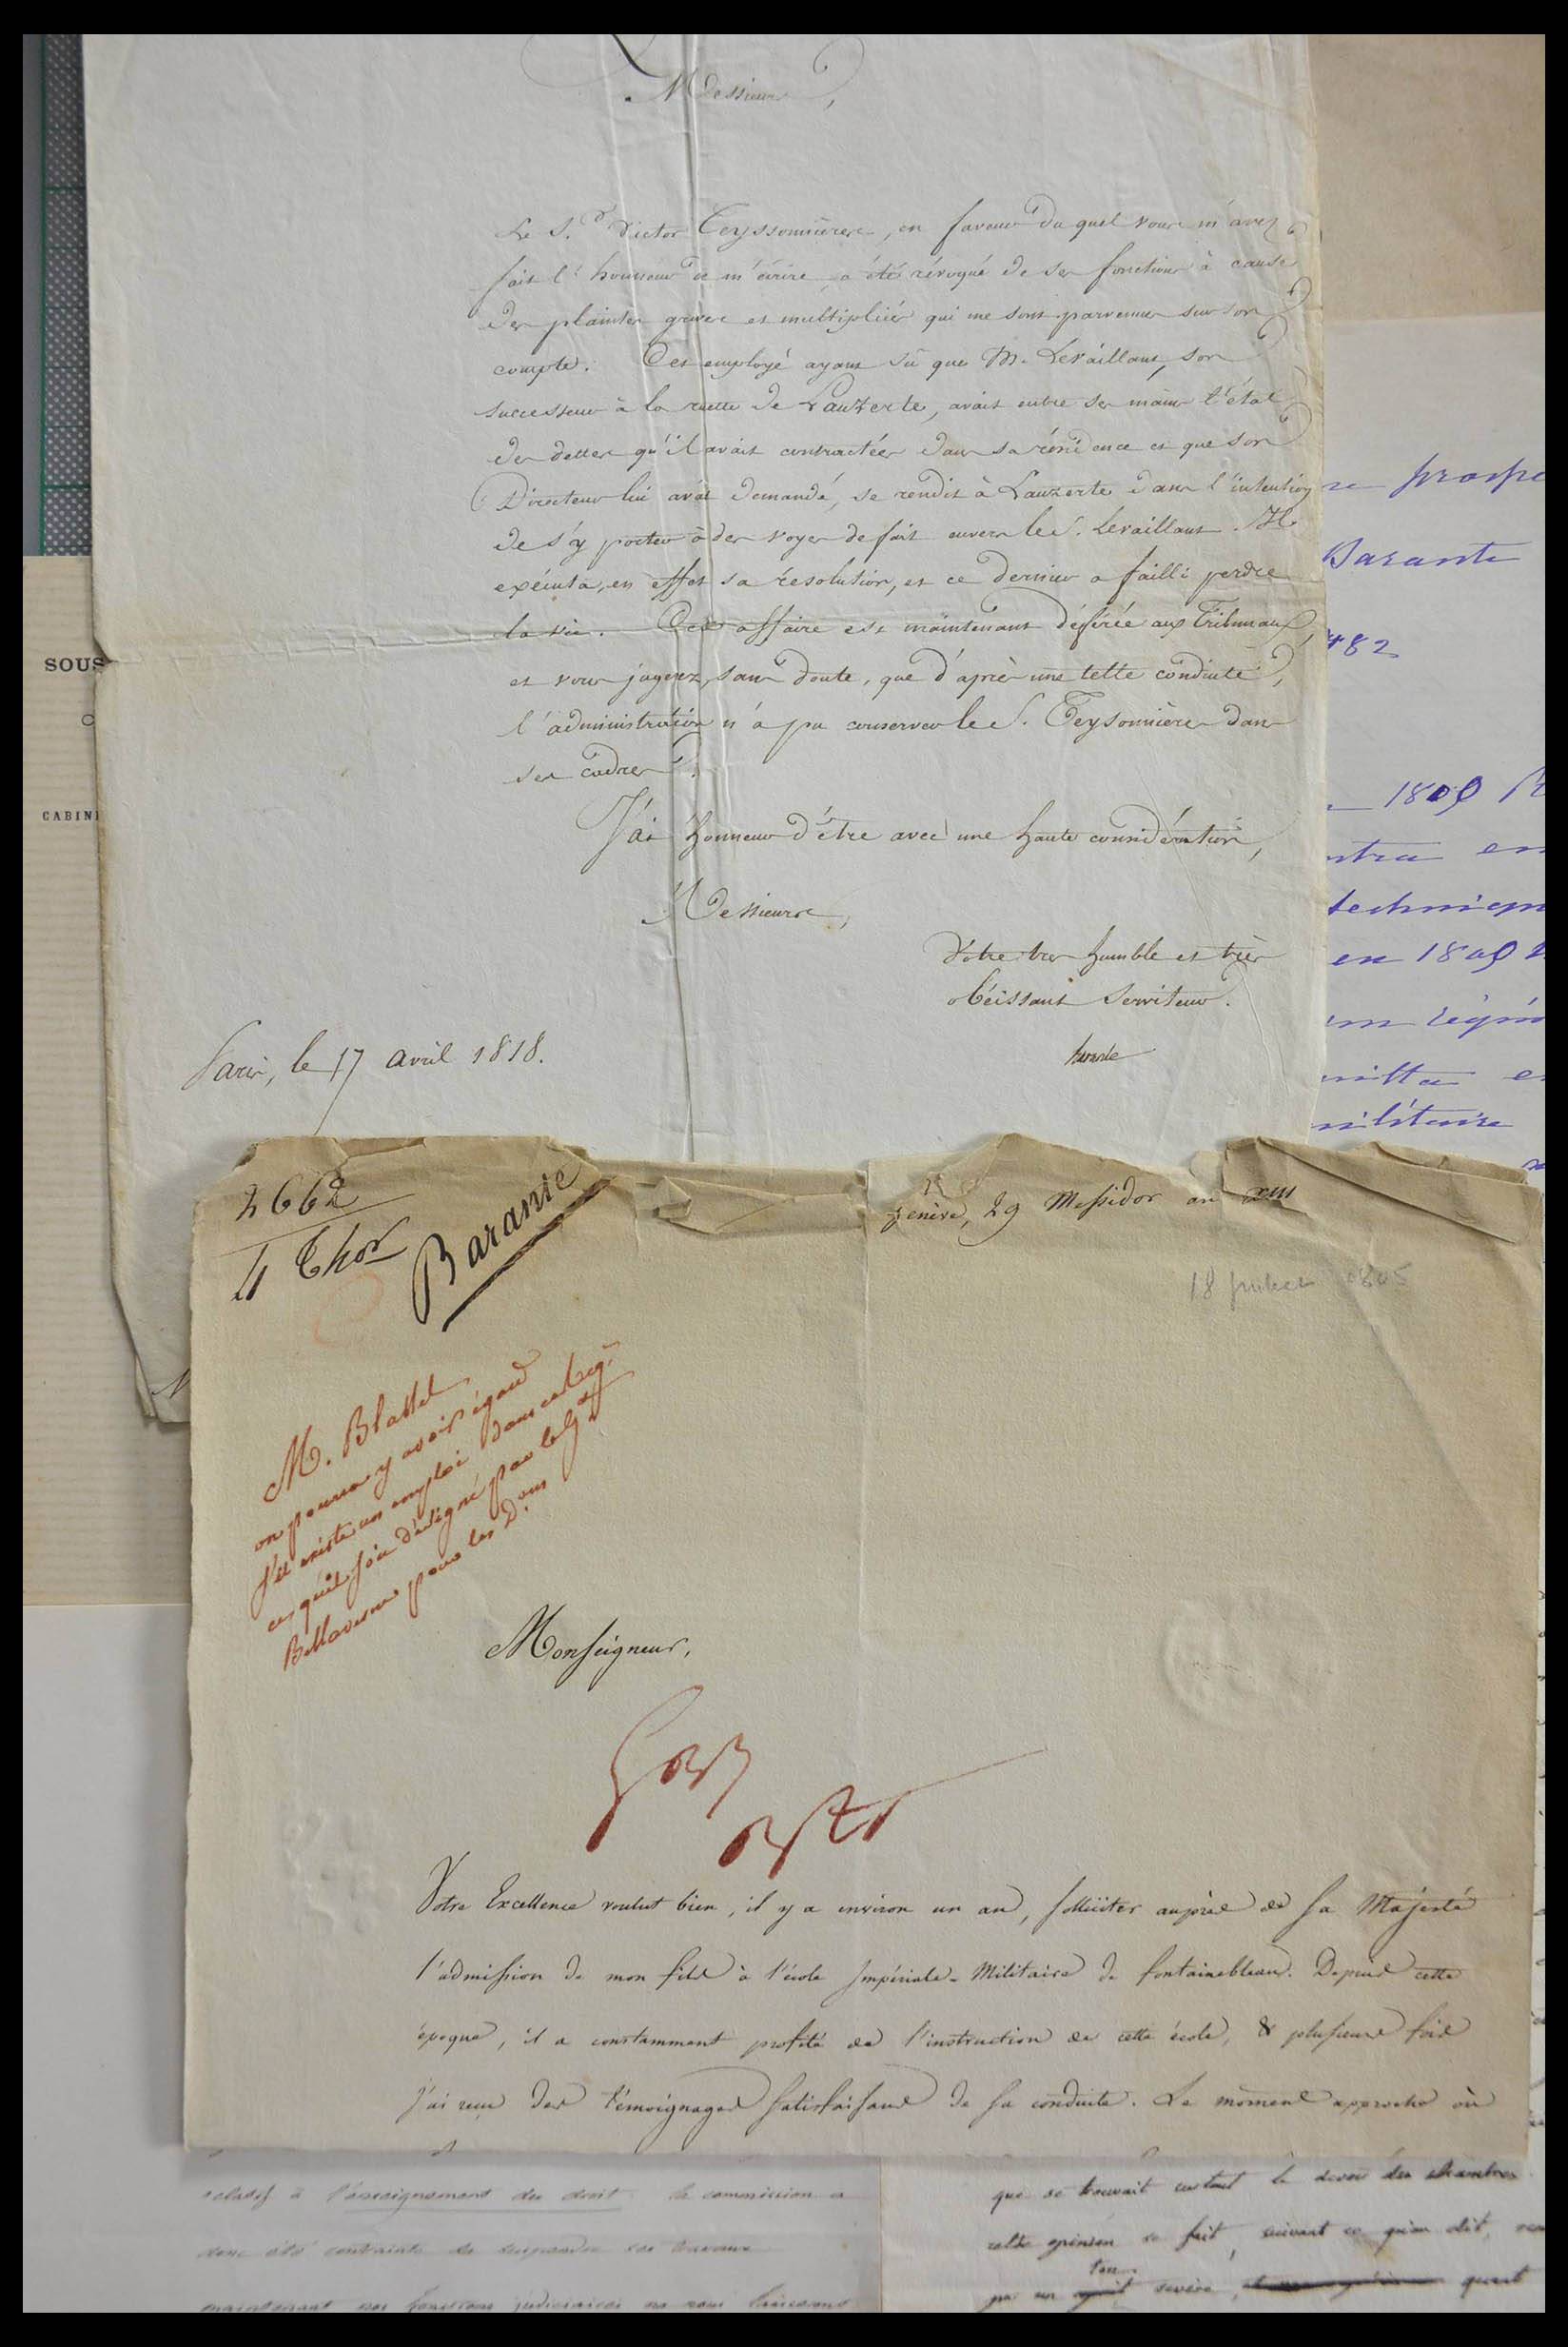 Messieurs,
Le S.r Victor Teyssonnière, en faveur duquel vous m'avez
fait l'honneur de m'écrire, a été révoqué de ses fonctions à cause
des plaintes graves et multipliées qui me sont parvenues sur son
compte. Cet employé ayant sû que M. Levaillant, son
successeur à la recette de Lauzerte, avait entre ses mains l'état
des dettes qu'il avait contractées dans sa résidence et que son
Directeur lui avait demandé, se rendit à Lauzerte dans l'intention
de s'y porter à des voyes de fait envers le S. Levaillant. Il
exécuta, en effet sa résolution, et ce dernier a failli perdre
la vie. Cette affaire est maintenant déférée aux Tribunaux,
et vous jugerez, sans doute, que d'après une telle conduite,
l'administration n'a pu conserver le S. Teysonnière dans
ses cadres.
J'ai l'honneur d'être avec une haute considération,
Messieurs,
Votre très humble et très
obéissant Serviteur.
Barante
Paris, le 17 avril 1818.
SOUS
CABIN
prospe
Barante
1809
en
technique
en 1809
militaire
2662
4 Thor
Barante
Genève, 29 Messidor an XIII
18 juillet 1805
M. Blattel
on pourra y avoir égard
s'il existe un emploi dans ce Reg.t
et qu'il soit désigné par le G.al
Bellavesne pour les D.ons
Monseigneur,
Votre Excellence voulut bien, il y a environ un an, solliciter auprès de Sa Majesté
l'admission de mon fils à l'école Impériale-Militaire de fontainebleau. Depuis cette
époque, il a constamment profité de l'instruction de cette école, & plusieurs fois
j'ai reçu des témoignages satisfaisans de sa conduite. Le moment approche où
relatif à l'enseignement du droit la commission a
donc été contrainte de suspendre ses travaux
maintenant nos fonctions judiciaires ne nous laisserons
que se trouvait surtout le devoir des chambres
cette opinion se fait, suivant ce qu'on dit,
ton
par un esprit sévère, quant